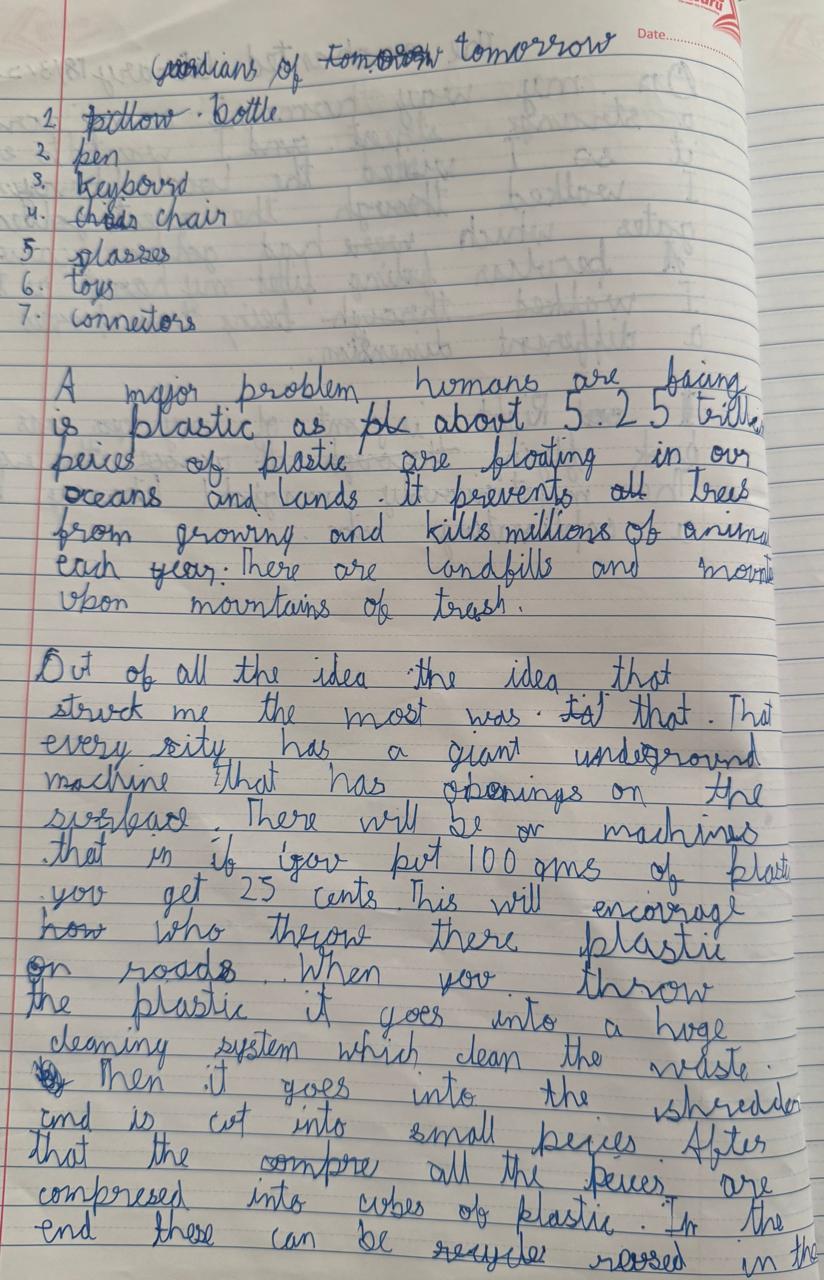 Date..............
Guardians of tomorrow tomorrow
1 pillow . bottle
2 pen
3. keyboard
4. chair
5 glasses
6. toys
7. connectors
A major problem humans are facing
is plastic as about 5.25 trillion
peices of plastic are floating in our
oceans and lands. It prevents all trees
from growing and kills millions of animal
each year. There are landfills and mount
upon mountains of trash.
Out of all the idea the idea that
struck me the most was . that . That
every city has a giant underground
machine that has openings on the
surface. There will be or machines
that in if you put 100 gms of plastic
you get 25 cents. This will encourage
how who throw there plastic
on roads. When you throw
the plastic it goes into a huge
cleaning system which clean the waste.
Then it goes into the shredder
and is cut into small peices. After
that the compre all the peices are
compresed into cubes of plastic. In the
end these can be recycle reused in the